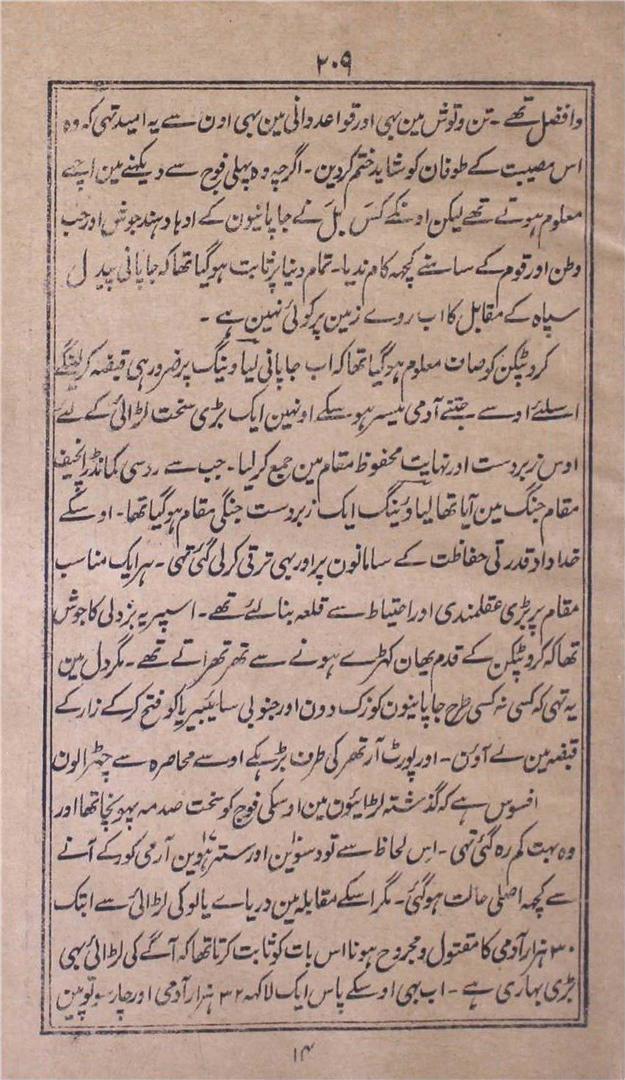 ۲۰۹
وافضل تھے ۔ تن و توش مین بہی اور قواعد دانی مین بہی اون سے یہ امید تہی کہ وہ
اس مصیبت کے طوفان کو شاید ختم کردین ۔ اگرچہ وہ پہلی فوج سے دیکہنے مین اچہے
معلوم ہوتے تھے لیکن اونکے کَس بَل نے جاپانیون کے اندہا دہند جوش اور حب
وطن اور قوم کے سامنے کچہہ کام ندیا ۔ تمام دنیا پر ثابت ہوگیا تھا کہ جاپانی پیدل
سپاہ کے مقابل کا اب روے زمین پر کوئی نہین ہے ۔
کروپٹکن کو صاف معلوم ہوگیا تھا کہ اب جاپانی لیاوینگ پر ضرور ہی قبضہ کرلینگے
اسلئے اوسے جتنے آدمی میسر ہو سکے اونہین ایک بڑی سخت لڑائی کے لئے
اوس زبردست اور نہایت محفوظ مقام مین جمع کرلیا ۔ جب سے روسی کمانڈر انچیف
مقام جنگ مین آیا تھا لیاوینگ ایک زبردست جنگی مقام ہوگیا تھا ۔ اوسکے
خداداد قدرتی حفاظت کے سامانون پر اور بہی ترقی کرلی گئی تہی ۔ ہر ایک مناسب
مقام پر بڑی عقلمندی اور احتیاط سے قلعہ بنالئے تھے ۔ اسپر یہ بزدلی کا جوش
تھا کہ کروپٹکن کے قدم یہان کہڑے ہونے سے تھرتھراتے تھے ۔ مگر دل مین
یہ تہی کہ کسی نہ کسی طرح جاپانیون کو زک دون اور جنوبی سائبیریا کو فتح کرکے زار کے
قبضہ مین لے آؤن ۔ اور پورٹ آرتھر کی طرف بڑہکے اوسے محاصرہ سے چھڑالون
افسوس ہے کہ گذشتہ لڑائیون مین اوسکی فوج کو سخت صدمہ پہونچا تھا اور
وہ بہت کم رہ گئی تہی ۔ اس لحاظ سے تو دسوین اور سترہوین آرمی کور کے آنے
سے کچہہ اصلی حالت ہوگئی ۔ مگر اسکے مقابلہ مین دریاے یالو کی لڑائی سے ابتک
۳۰ ہزار آدمی کا مقتول و مجروح ہونا اس بات کو ثابت کرتا تھا کہ آگے کی لڑائی بہی
بڑی بہاری ہے ۔ اب بہی اوسکے پاس ایک لاکہہ ۳۲ ہزار آدمی اور چار سو توپین
۱۴